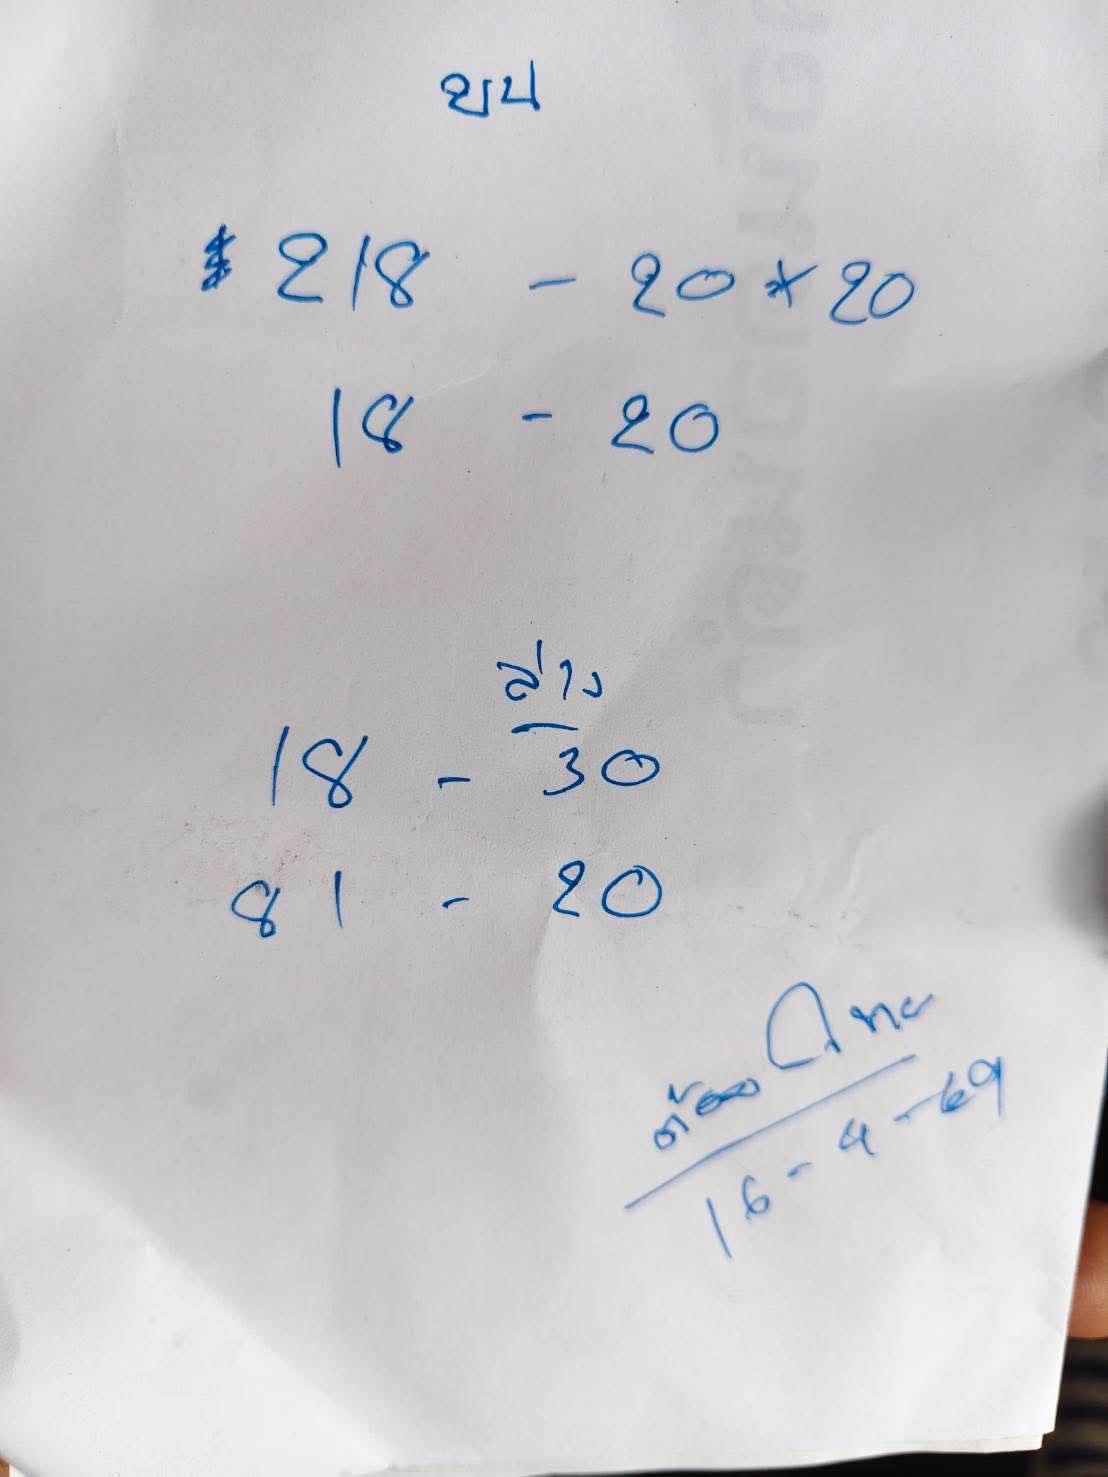 บน
218 - 20*20
18 - 20
ล่าง
18 - 30
81 - 20
ต้อย
16-4-69